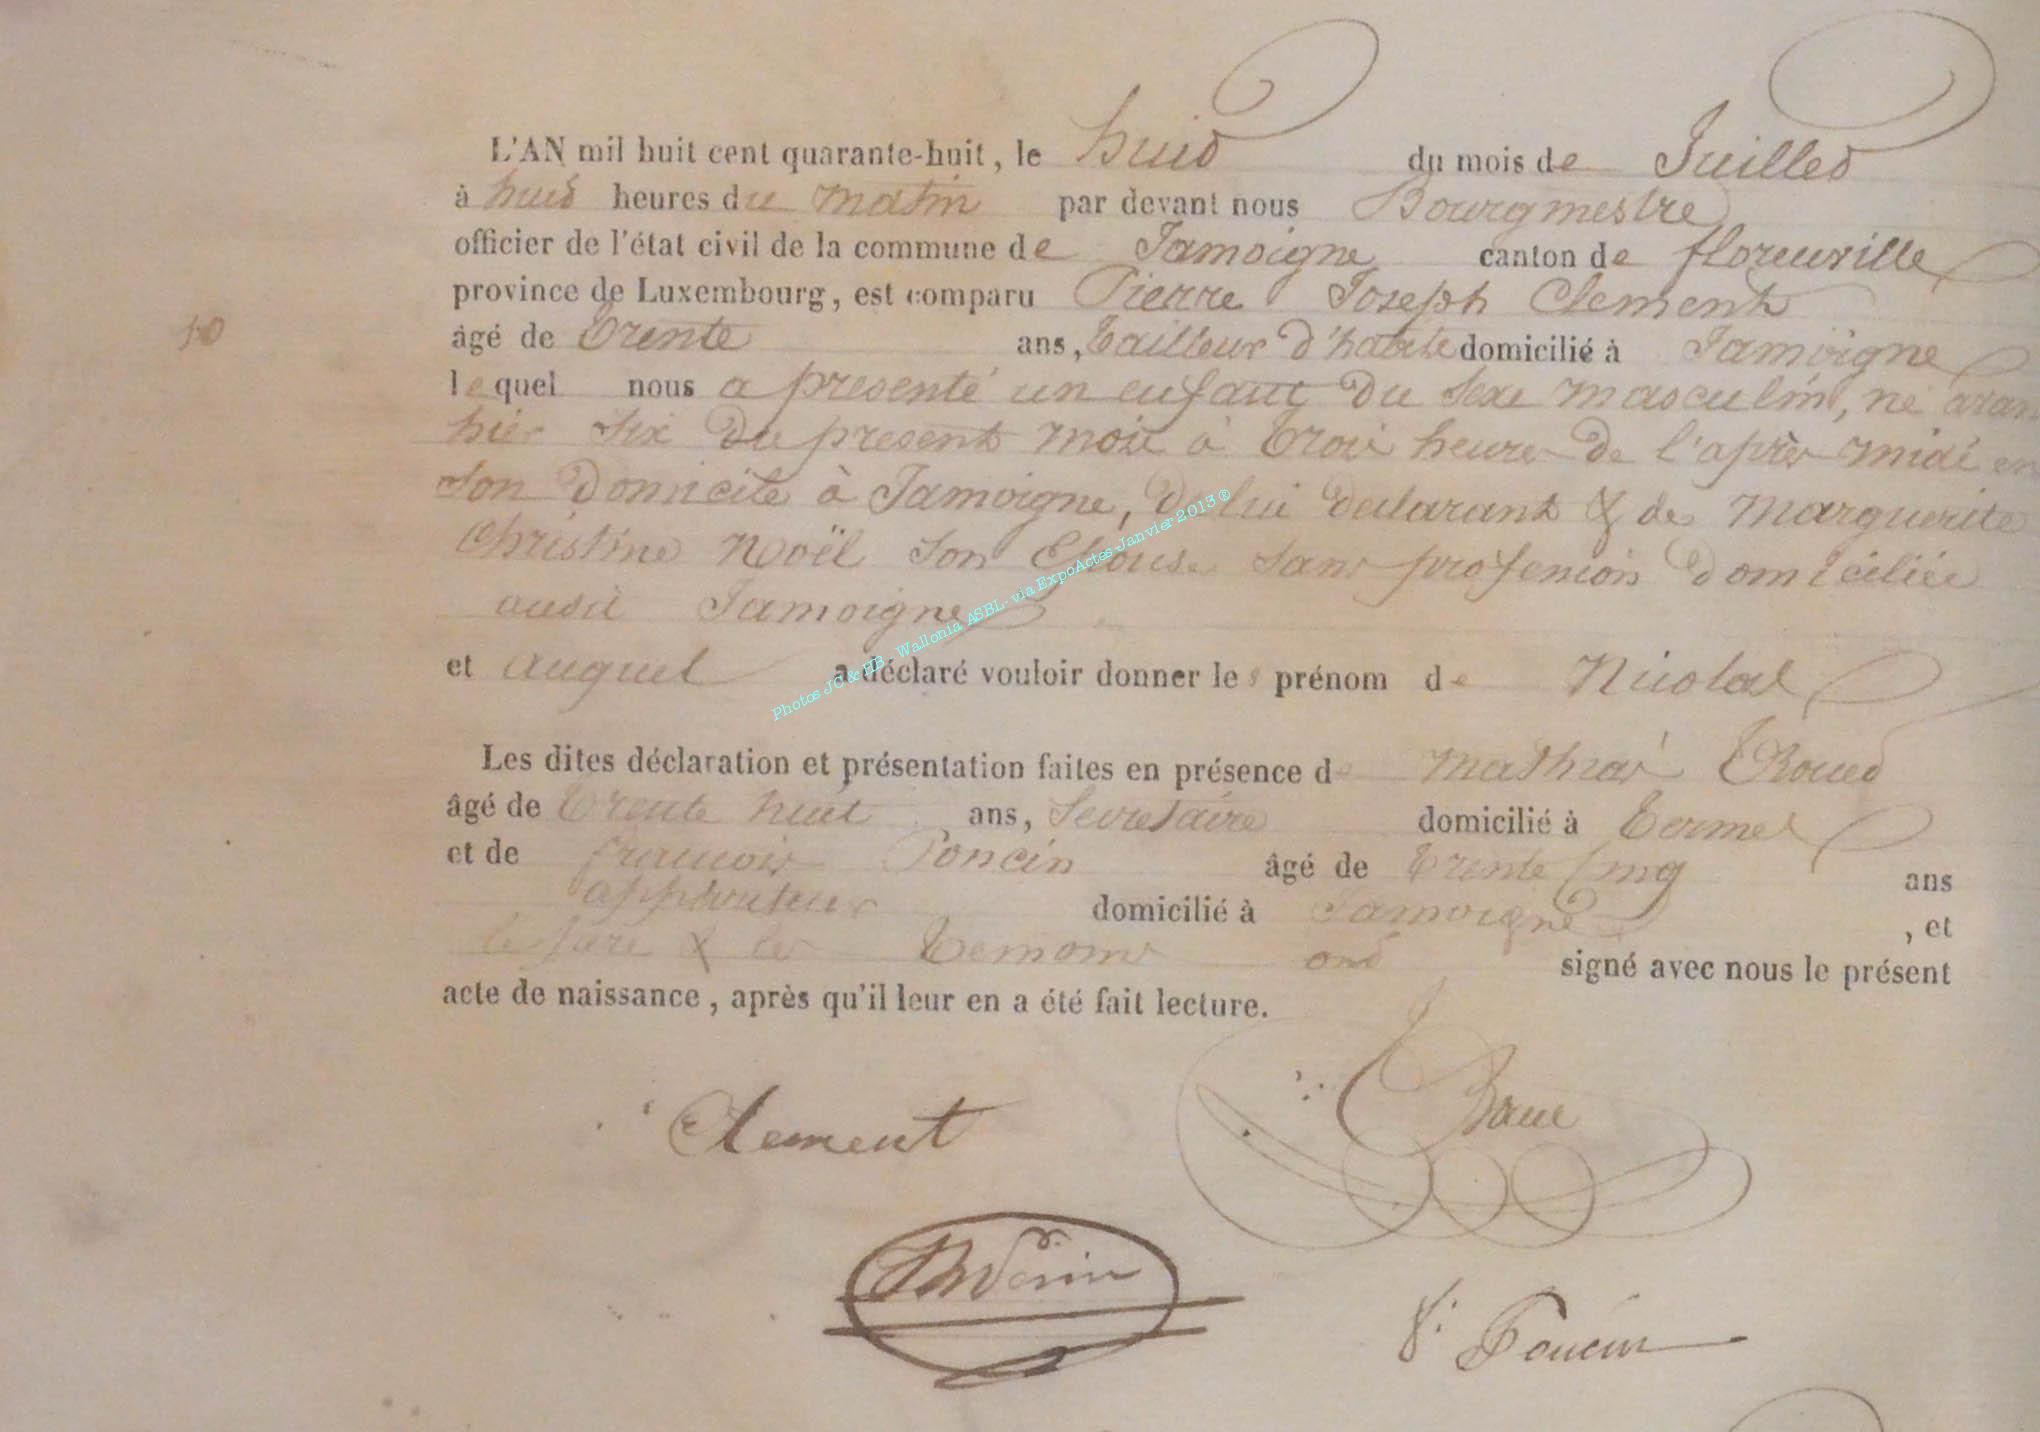 L'AN mil huit cent quarante-huit, le huit du mois de Juillet
à huit heures du matin par devant nous Bourgmestre
officier de l'état civil de la commune de Jamoigne canton de florenville
province de Luxembourg, est comparu Pierre Joseph Clement
50 âgé de trente ans, tailleur d'habits domicilié à Jamoigne
lequel nous a presenté un enfant du sexe masculin, né avant
hier six du present mois à trois heures de l'après midi en
son domicile à Jamoigne, de lui declarant & de Marguerite
Christine Noël son Epouse sans profession domiciliée
aussi Jamoigne
et auquel a déclaré vouloir donner les prénom de Nicolas
Les dites déclaration et présentation faites en présence de Mathias
âgé de trente huit ans, Secretaire domicilié à termes
et de francois Poncin âgé de trente cinq ans
appariteur domicilié à Jamoigne, et
le père & les temoins ont signé avec nous le présent
acte de naissance, après qu'il leur en a été fait lecture.
Clement
f: Poncin
Photos JC & HB - Wallonia ASBL - via ExpoActes-Janvier 2013®